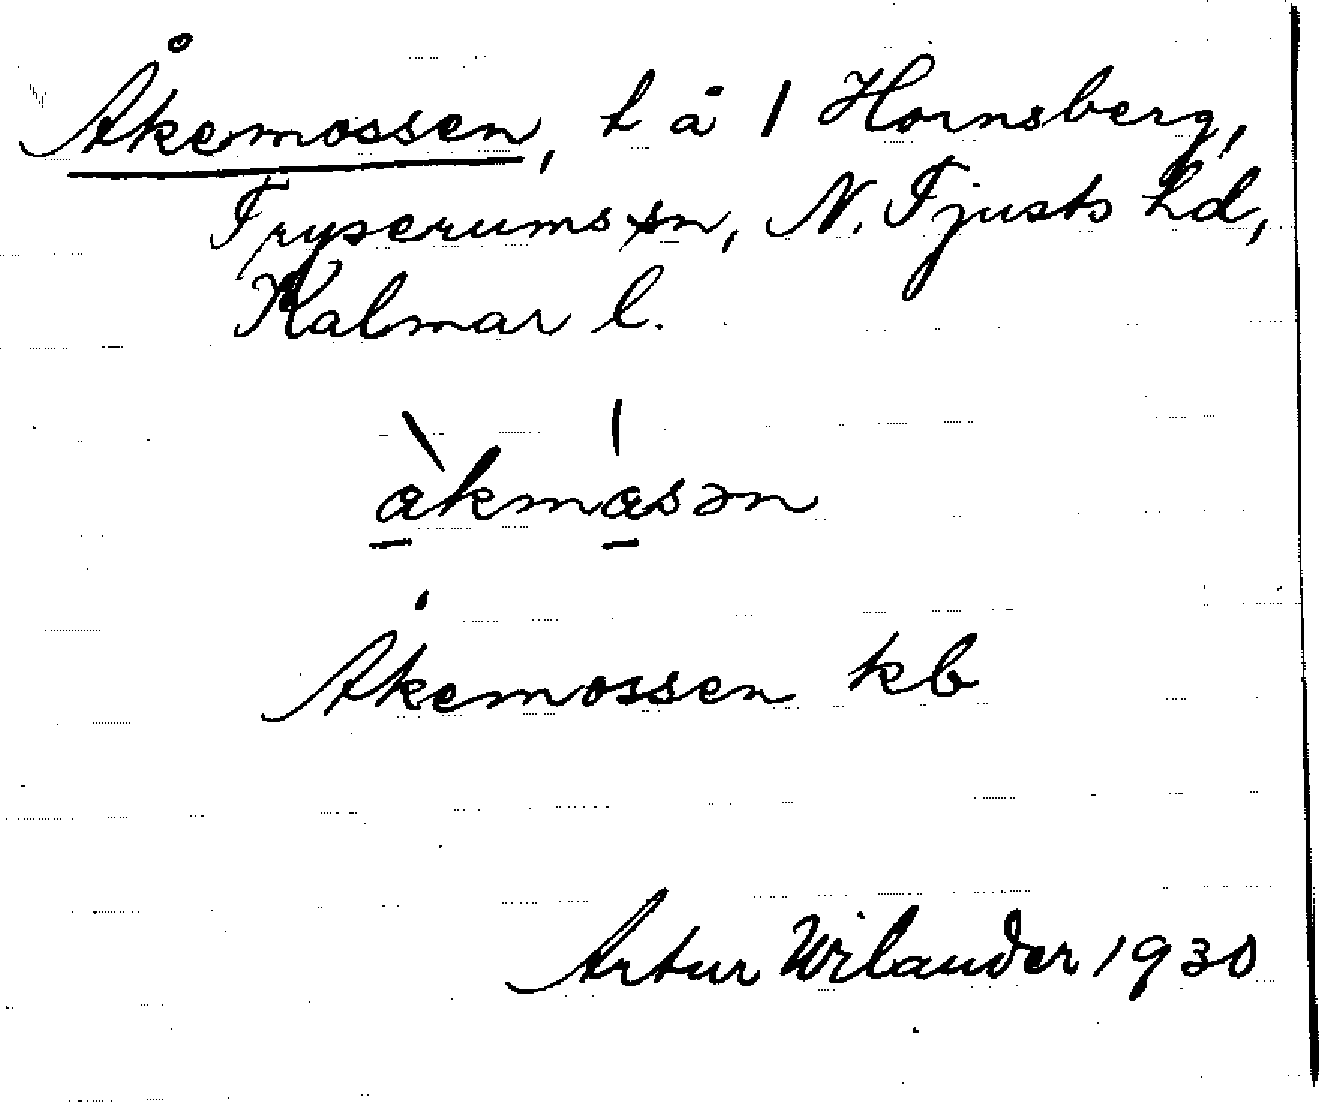 Åkemossen, t å 1 Hornsberg,
Tryserums sn, N. Tjusts hd,
Kalmar l.
àkmásən
Åkemossen kb
Artur Wilander 1930